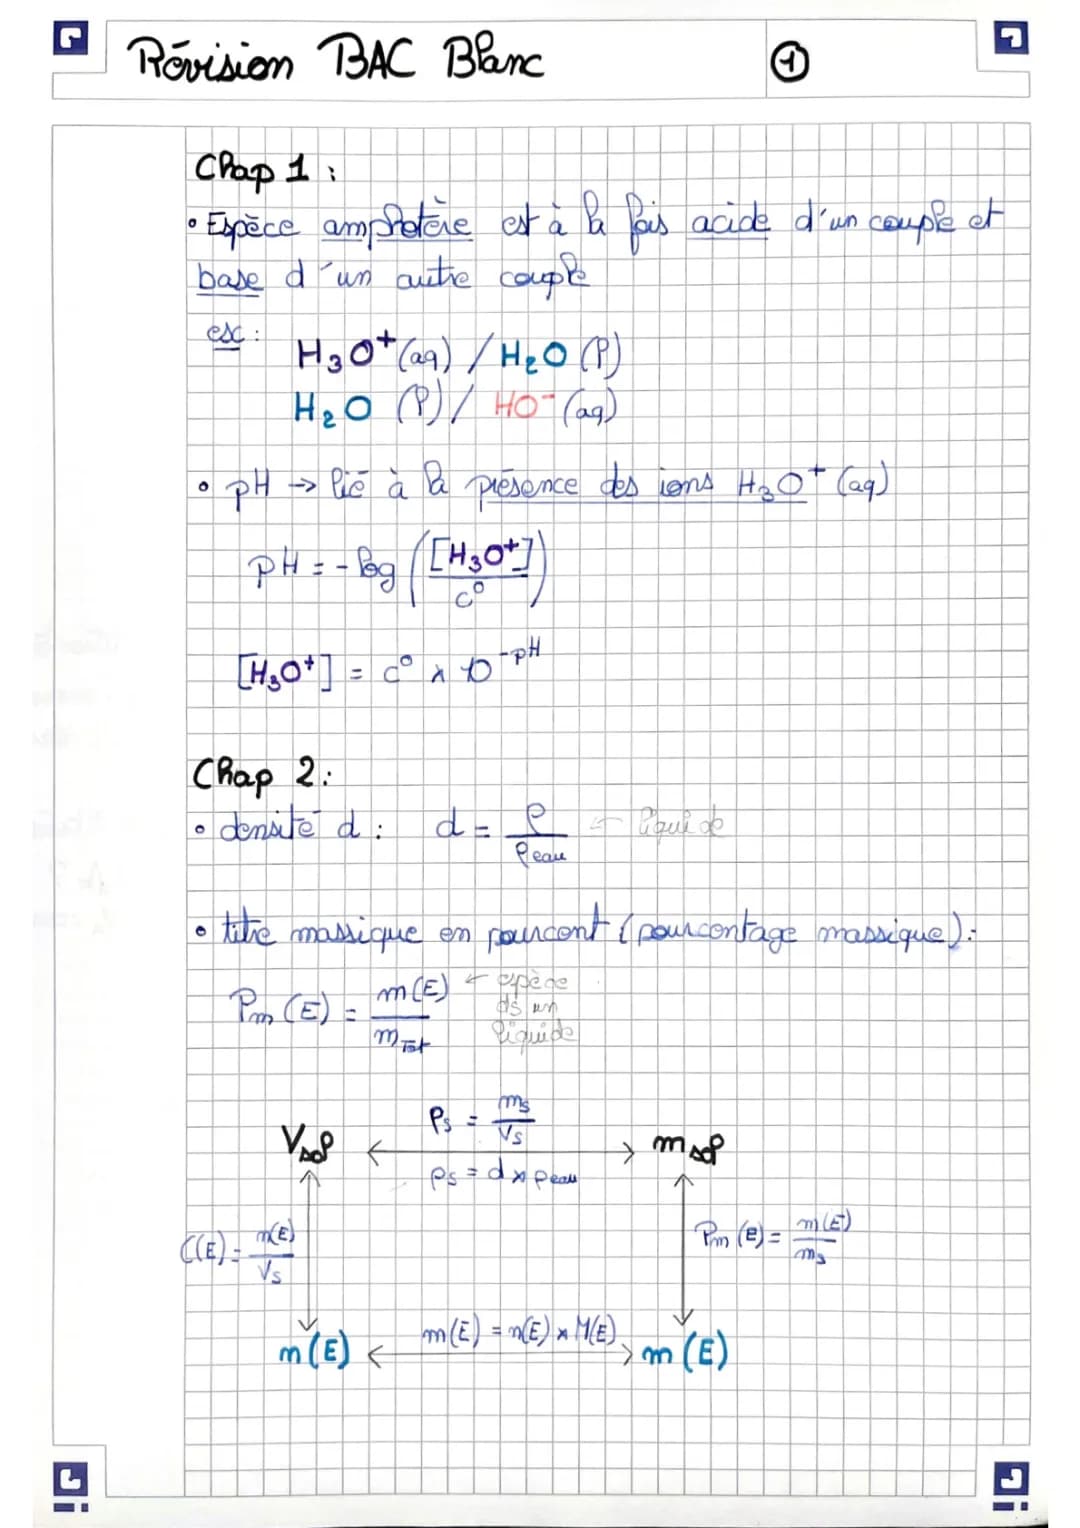 Révision BAC Blanc
1
Chap 1 :
• Espèce amphotère est à la fois acide d'un couple et
base d'un autre couple
ex :
H₃O⁺(aq) / H₂O (l)
H₂O (l) / HO⁻ (aq)
• pH → lié à la présence des ions H₃O⁺ (aq)
pH = - log ([H₃O⁺] / c°)
[H₃O⁺] = c° × 10^-pH
Chap 2 :
• densité d : d = ρ / ρeau ← liquide
• titre massique en pourcent (pourcentage massique) :
Pm (E) = m(E) / mTot ← espèce
ds un
liquide
ρs = ms / Vs
Vsol ↔ msol
ρs = d × ρeau
C(E) = n(E) / Vs
Pm (E) = m(E) / ms
m(E) = n(E) × M(E)
n(E) ↔ m(E)